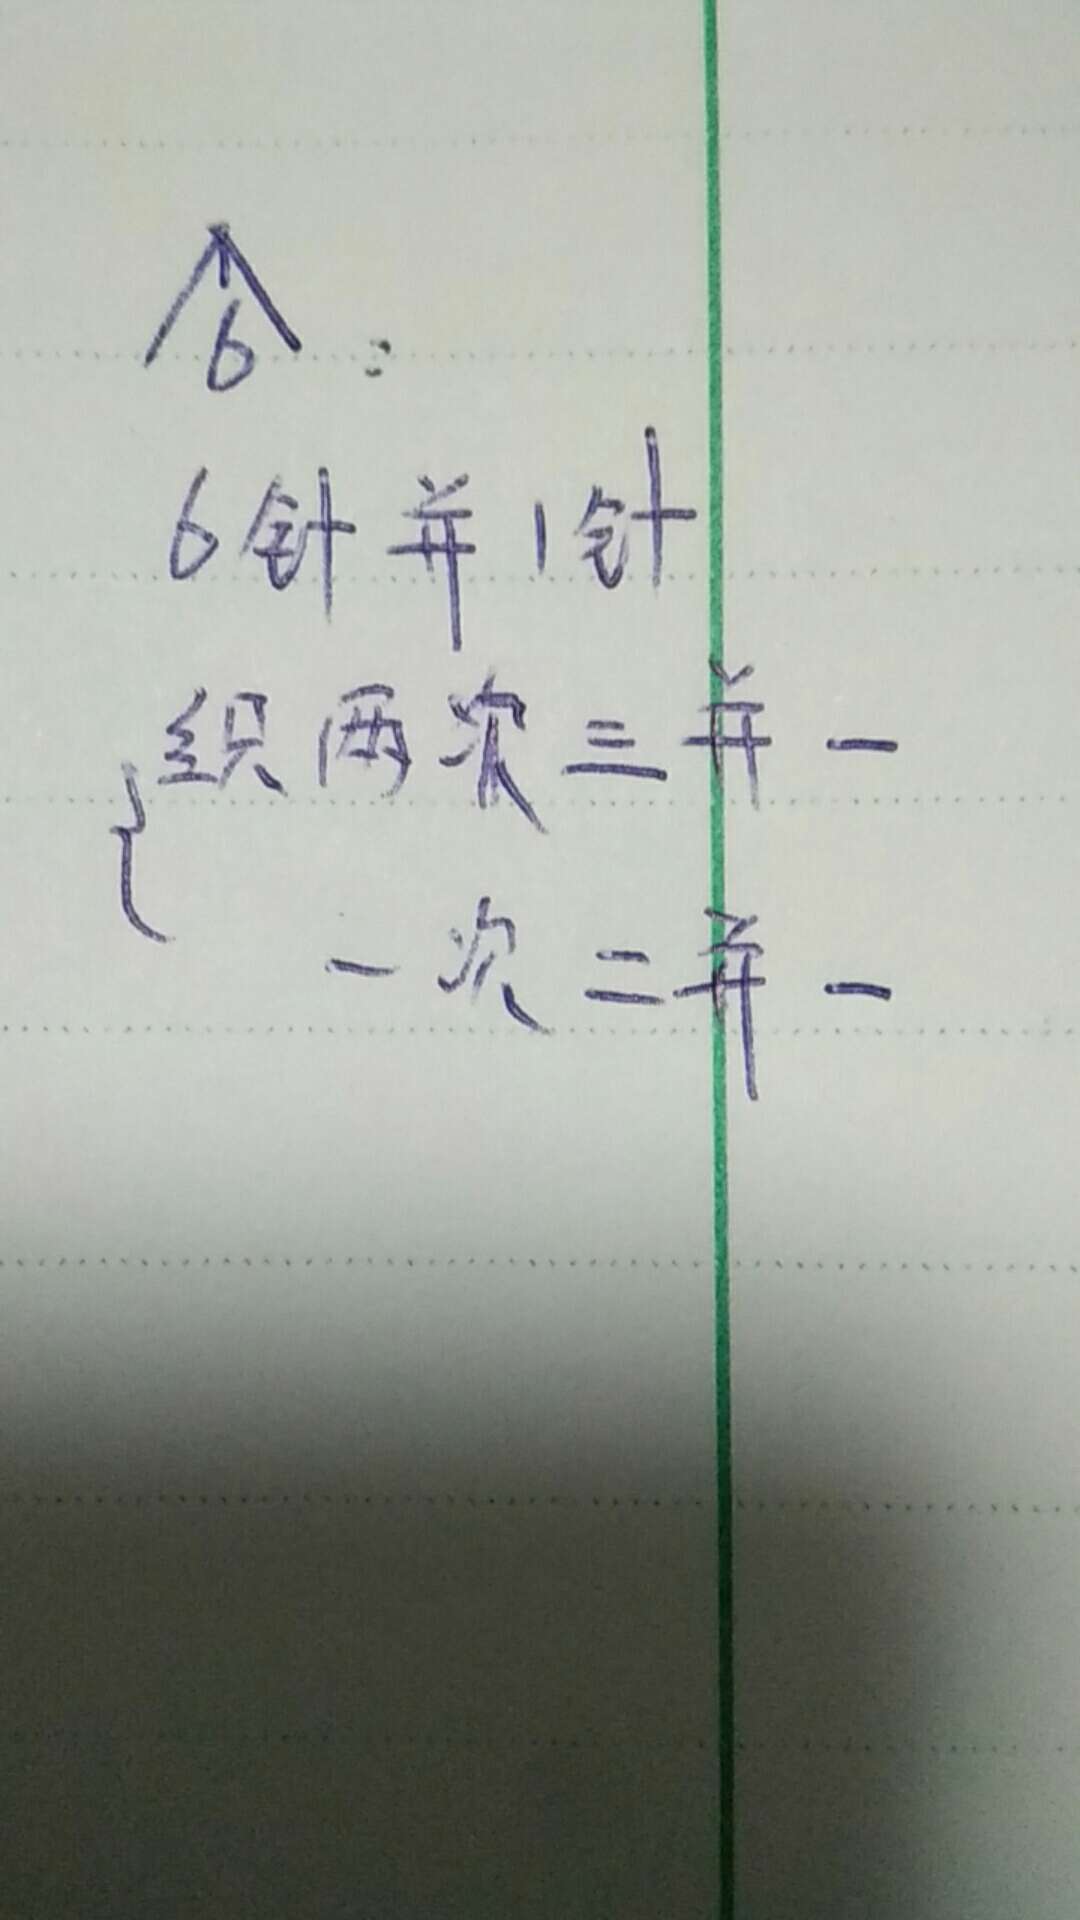 6:
6针并1针
织两次三并一
一次二并一